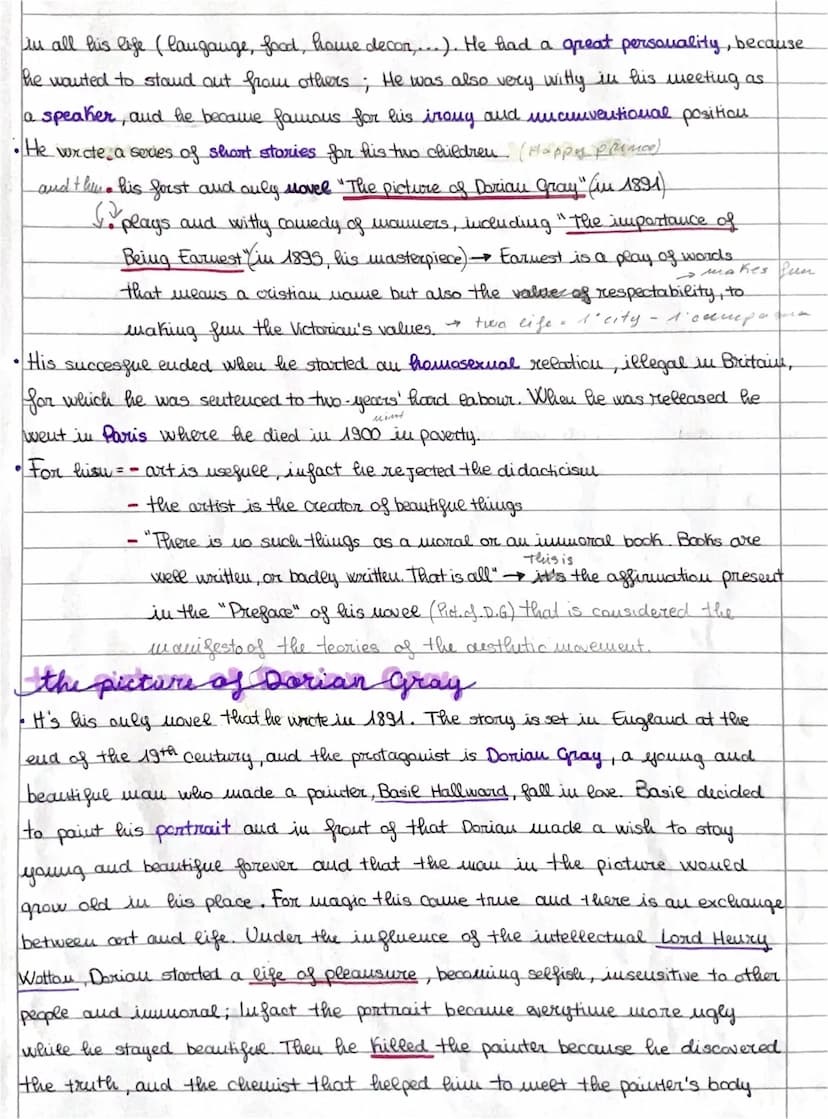 in all his life (laugauge, food, home decor,...). He had a great personality, because
he wanted to stand out from others ; He was also very witty in his meeting as
a speaker, and he became famous for his irony and uncunventional position
• He wrote a series of short stories for his two children. (Happy prince)
and then • his first and only novel "The picture of Dorian Gray" (in 1891)
• plays and witty comedy of manners, including "The importance of
Being Earnest" (in 1895, his masterpiece) → Earnest is a play of words
→ makes fun
that means a cristian name but also the value of respectability, to
making fun the Victorian's values. → two life = 1°city -
• His succesful ended when he started an homosexual relation, illegal in Britain,
for which he was sentenced to two-years' hard labour. When he was released he
went in Paris where he died in 1900 in poverty.
• For him = - art is useful, infact he rejected the didacticism
- the artist is the creator of beautiful things
- "There is no such things as a moral or an immoral book. Books are
This is
well written, or badly written. That is all" → it's the affirmation present
in the "Preface" of his novel (Pict. of. D.G) that is considered the
manifesto of the teories of the aesthetic movement.
the picture of Dorian Gray
• It's his only novel that he wrote in 1891. The story is set in England at the
end of the 19th century, and the protagonist is Dorian Gray, a young and
beautiful man who made a painter, Basil Hallward, fall in love. Basil decided
to paint his portrait and in front of that Dorian made a wish to stay
young and beautiful forever and that the man in the picture would
grow old in his place. For magic this came true and there is an exchange
between art and life. Under the influence of the intellectual Lord Henry
Wotton, Dorian started a life of pleausure, becoming selfish, insensitive to other
people and immoral; Infact the portrait became everytime more ugly
while he stayed beautiful. Then he killed the painter because he discovered
the truth, and the chemist that helped him to meet the painter's body